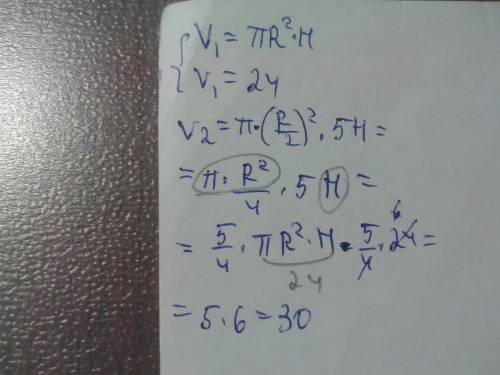 V₁ = πR²·H
V₁ = 24
V₂ = π·(R/2)²·5H =
= π·R²/4·5H =
= 5/4·πR²·H = 5/4·24 =
6
24
= 5·6 = 30